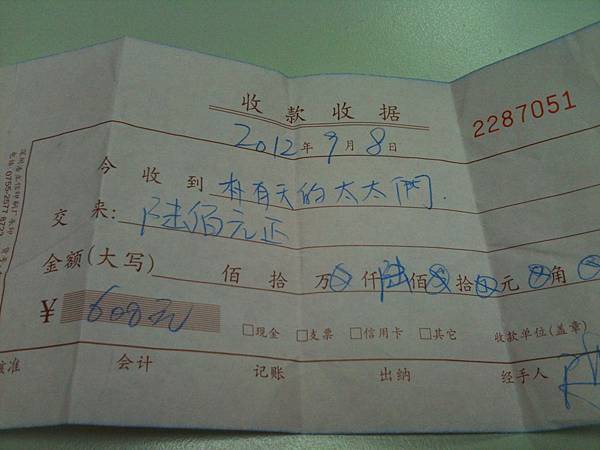 收款收据
2287051
2012年9月8日
今收到 有天的太太們
交来: 陆佰元正
金额(大写) 佰 拾 万 仟陆佰 拾 元 角
¥ 600元
□现金 □支票 □信用卡 □其它 收款单位(盖章)
核准 会计 记账 出纳 经手人